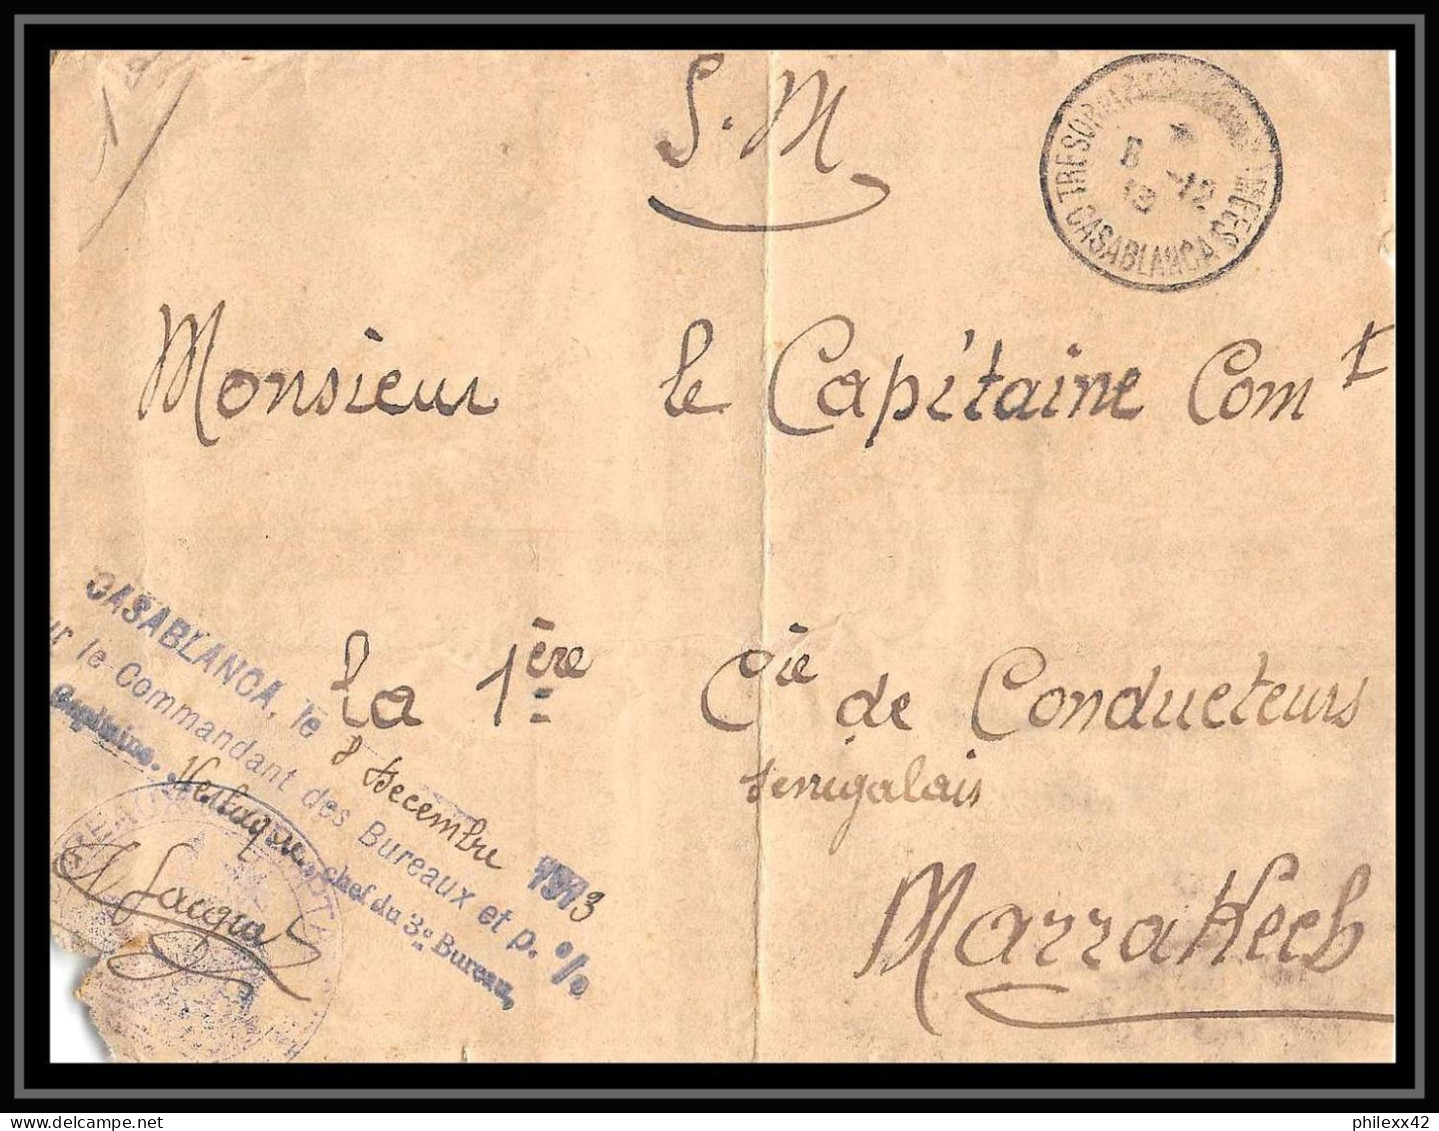 S.M
TRESOR
8 -12
13
CASABLANCA
Monsieur le Capitaine Comt
la 1ère Cie de Conducteurs
Sénégalais
Marrakech
CASABLANCA, le 8 Décembre 1913
le Commandant des Bureaux et p. %
Capitaine. chef du 3e Bureau,
philexx42